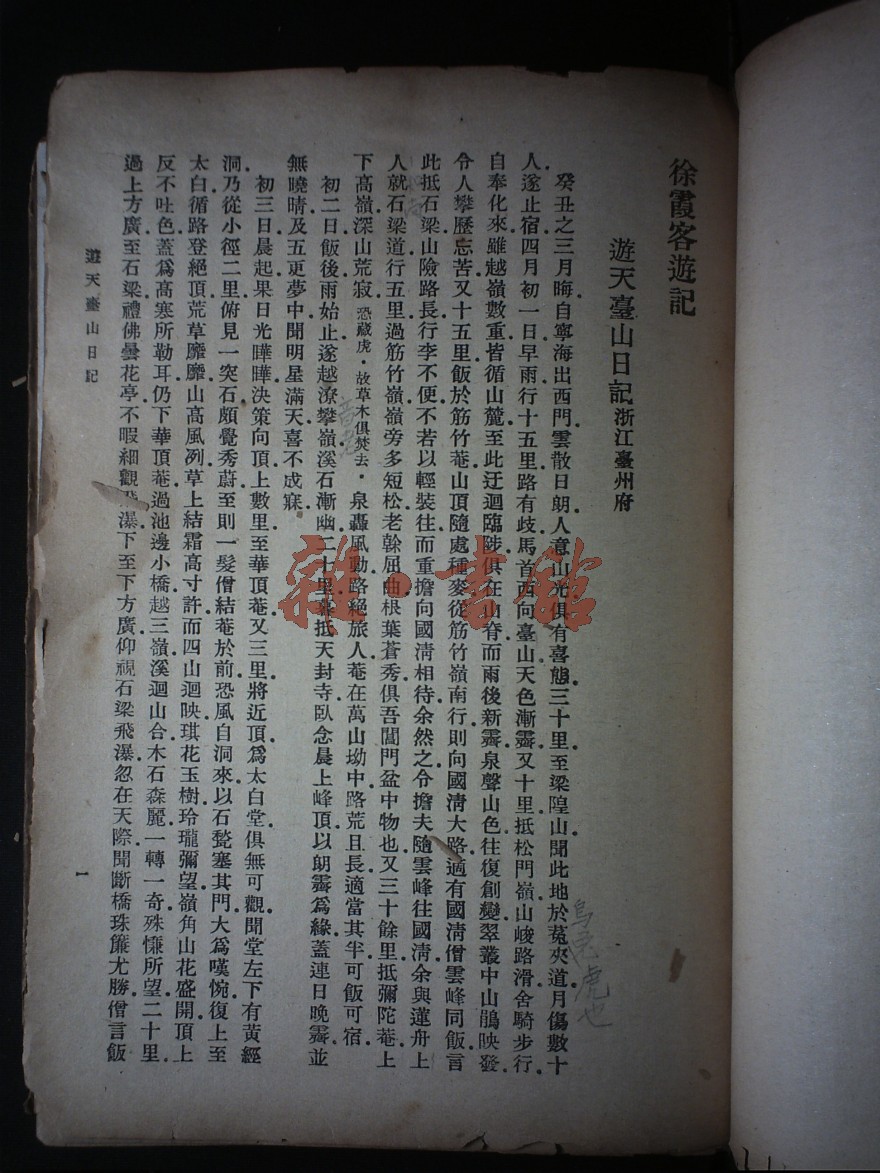 徐霞客遊記
遊天臺山日記浙江臺州府
癸丑之三月晦自寧海出西門雲散日朗人意山光俱有喜態三十里至梁隍山聞此地於菟夾道月傷數十
人遂止宿四月初一日早雨行十五里路有歧馬首西向臺山天色漸霽又十里抵松門嶺山峻路滑舍騎步行
自奉化來雖越嶺數重皆循山麓至此迂迴臨陟俱在山脊而雨後新霽泉聲山色往復創變翠叢中山鵑映發
令人攀歷忘苦又十五里飯於筋竹菴山頂隨處種麥從筋竹嶺南行則向國清大路適有國清僧雲峰同飯言
此抵石梁山險路長行李不便不若以輕裝往而重擔向國清相待余然之令擔夫隨雲峰往國清余與蓮舟上
人就石梁道行五里過筋竹嶺嶺旁多短松老幹屈曲根葉蒼秀俱吾閶門盆中物也又三十餘里抵彌陀菴上
下高嶺深山荒寂恐藏虎故草木俱焚去泉轟風動路絕旅人菴在萬山坳中路荒且長適當其半可飯可宿
初二日飯後雨始止遂越潦攀嶺溪石漸幽二十里暮抵天封寺臥念晨上峰頂以朗霽爲緣蓋連日晚霽並
無曉晴及五更夢中聞明星滿天喜不成寐
初三日晨起果日光曄曄決策向頂上數里至華頂菴又三里將近頂爲太白堂俱無可觀聞堂左下有黃經
洞乃從小徑二里俯見一突石頗覺秀蔚至則一髮僧結菴於前恐風自洞來以石甃塞其門大爲嘆惋復上至
太白循路登絕頂荒草靡靡山高風冽草上結霜高寸許而四山迴映琪花玉樹玲瓏彌望嶺角山花盛開頂上
反不吐色蓋爲高寒所勒耳仍下華頂菴過池邊小橋越三嶺溪迴山合木石森麗一轉一奇殊慊所望二十里
過上方廣至石梁禮佛曇花亭不暇細觀飛瀑下至下方廣仰視石梁飛瀑忽在天際聞斷橋珠簾尤勝僧言飯
遊天臺山日記
一
虎也
雜·書館